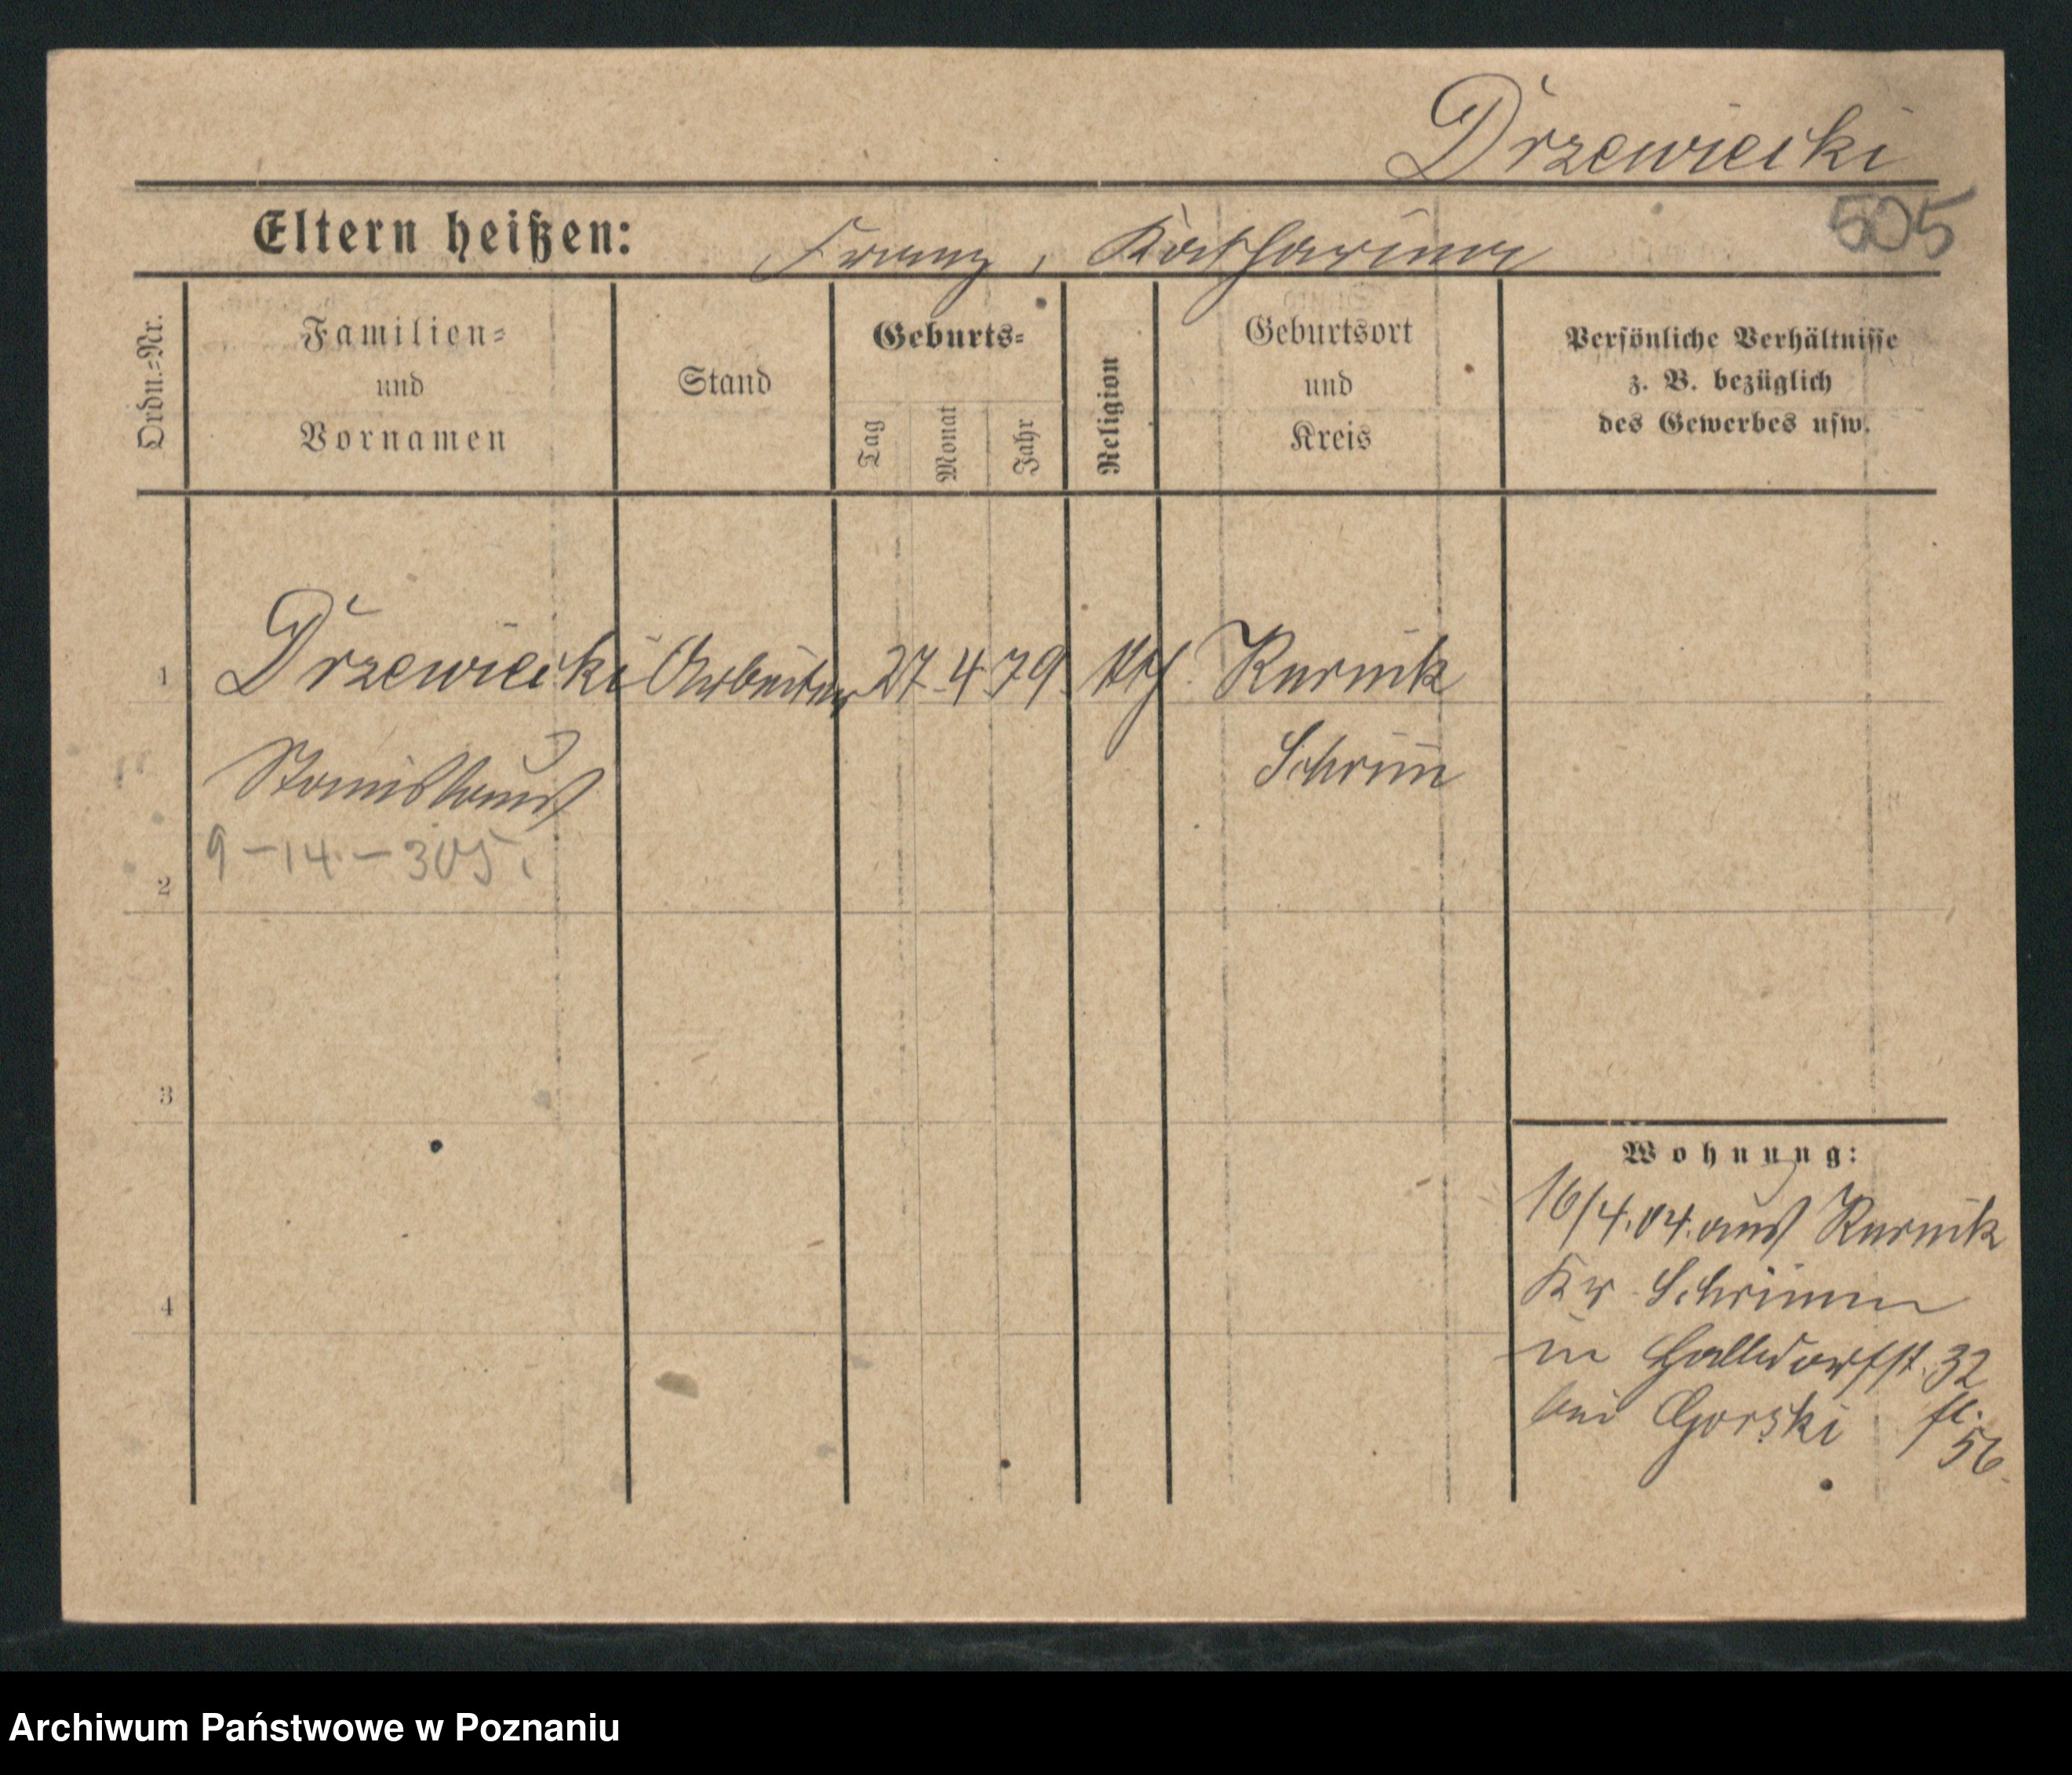 Drzewiecki
505
Eltern heißen: Franz, Katharina
Ordn.=Nr.
Familien=
und
Vornamen
Stand
Geburts=
Tag
Monat
Jahr
Religion
Geburtsort
und
Kreis
Persönliche Verhältnisse
z. B. bezüglich
des Gewerbes usw.
1 Drzewiecki Arbeiter 27.4.79. kth Kurnik
Stanislaus Schrim
9-14.-305.
2
3
4
Wohnung:
16/4.04. aus Kurnik
Kr. Schrimm
in Halbdorfst. 32
bei Gorski
56.
Archiwum Państwowe w Poznaniu